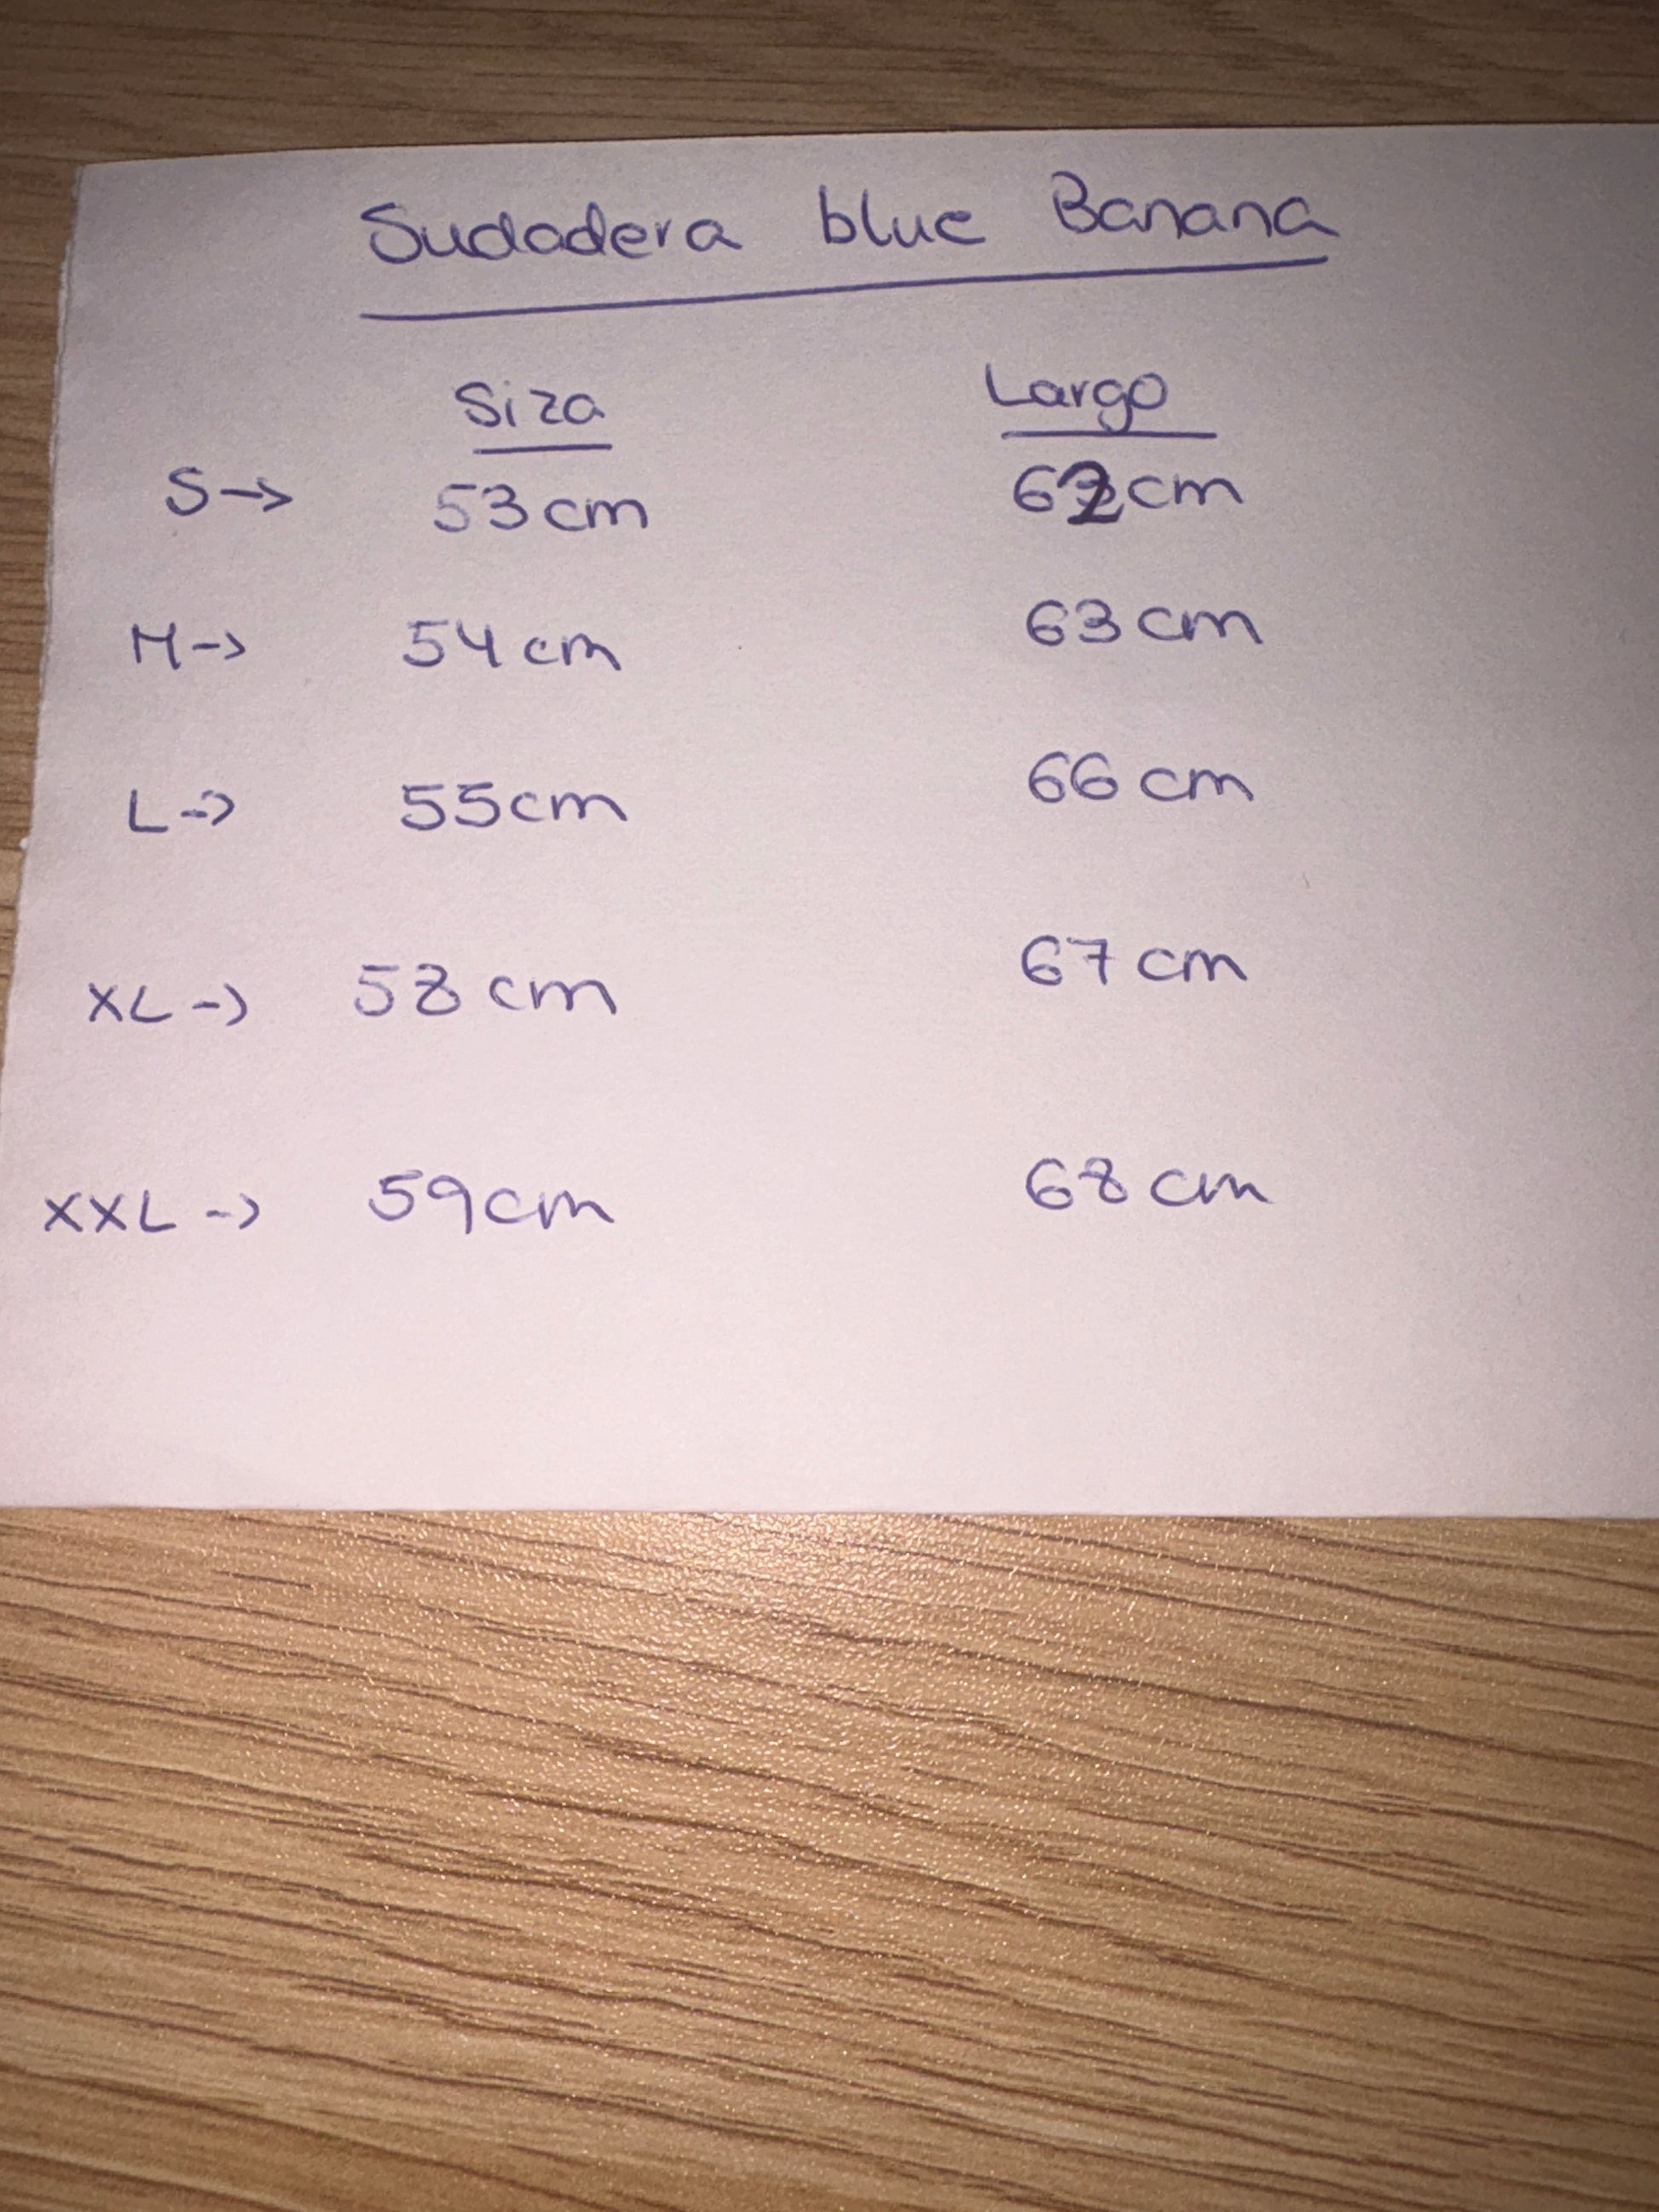 Sudadera blue Banana
Siza Largo
S-> 53cm 62cm
M-> 54cm 63cm
L-> 55cm 66cm
XL-> 58cm 67cm
XXL-> 59cm 68cm